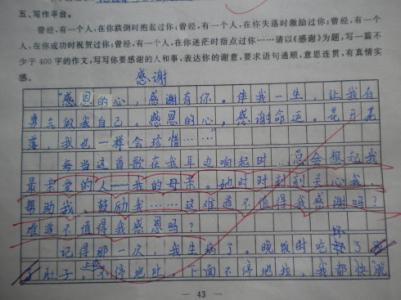 五、写作平台。
曾经,有一个人,在你跌倒时抱起过你;曾经,有一个人,在你失落时激励过你;曾经,有一个
人,在你成功时祝贺过你;曾经,有一个人,在你迷茫时指点过你……请以《感谢》为题,写一篇不
少于400字的作文,写写你要感谢的人和事,表达你的谢意,要求语句通顺,意思连贯,有真情实
感。
感谢
“感恩的心,感谢有你。伴我一生,让我有
勇气做我自己。感恩的心,感谢命运。花开花
落,我也一样会珍惜……”
每当这首歌在我耳边响起时,总会想起我
最亲爱的人——我的母亲。她时时刻刻关心我、
帮助我、鼓励我……这难道不值得我感谢吗?
难道不值得我感恩吗?
记得那一次,我生病了。晚饭时吃
肚子,上面不停地吐,下面不停地拉,我都快
— 43 —